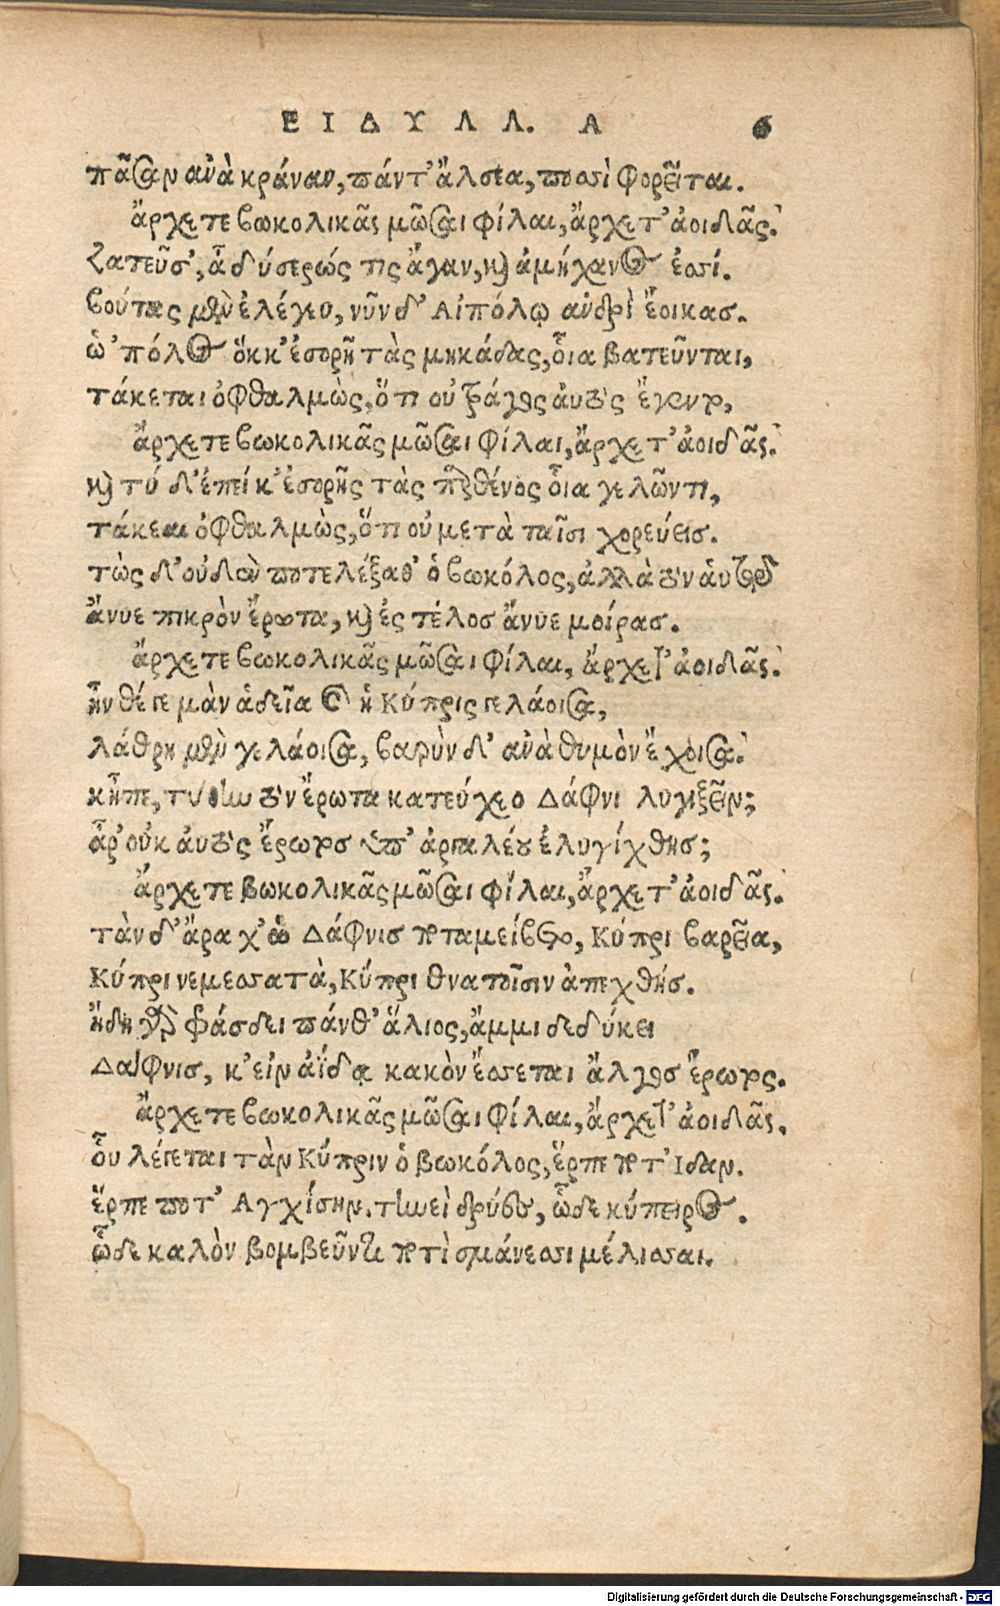 ΕΙΔΥΛΛ. Α 6
πᾶσαν ἀνὰ κράναν, πάντ' ἄλσεα, ποσὶ φορεῖται.
ἄρχετε βωκολικᾶς μῶσαι φίλαι, ἄρχετ' ἀοιδᾶς.
Ζατεῦσ', ἆ δύσερώς τις ἄγαν, καὶ ἀμήχανος ἐσσί.
βούτας μὲν ἐλέγευ, νῦν δ' Αἰπόλῳ ἀνδρὶ ἔοικας.
ὡ 'πόλος ὅκκ' ἐσορῇ τὰς μηκάδας, οἷα βατεῦνται,
τάκεται ὀφθαλμὼς, ὅτι οὐ τράγος αὐτὸς ἔγεντο,
ἄρχετε βωκολικᾶς μῶσαι φίλαι, ἄρχετ' ἀοιδᾶς.
καὶ τύ δ' ἐπεί κ' ἐσορῇς τὰς παρθένος οἷα γελῶντι,
τάκεαι ὀφθαλμὼς, ὅτι οὐ μετὰ ταῖσι χορεύεις.
τὼς δ' οὐδὲν ποτελέξαθ' ὁ βωκόλος, ἀλλὰ τὸν αὑτοῦ
ἄνυε πικρὸν ἔρωτα, καὶ ἐς τέλος ἄνυε μοίρας.
ἄρχετε βωκολικᾶς μῶσαι φίλαι, ἄρχετ' ἀοιδᾶς.
ἦνθέ γε μὰν ἁδεῖα καὶ ἡ Κύπρις γελάοισα,
λάθρη μὲν γελάοισα, βαρὺν δ' ἀνὰ θυμὸν ἔχοισα.
κἦπε, τύ θην τὸν ἔρωτα κατεύχεο Δάφνι λυγιξεῖν;
ἆρ' οὐκ αὐτὸς ἔρωτος ὑπ' ἀργαλέου ἐλυγίχθης;
ἄρχετε βωκολικᾶς μῶσαι φίλαι, ἄρχετ' ἀοιδᾶς.
τὰν δ' ἄρα χ' ὡ Δάφνις ποταμείβετο, Κύπρι βαρεῖα,
Κύπρι νεμεσσατὰ, Κύπρι θνατοῖσιν ἀπεχθής.
ἤδη γὰρ φράσδει πάνθ' ἅλιος, ἄμμι δεδύκει
Δάφνις, κ' εἰν ἀΐδα κακὸν ἔσσεται ἄλγος ἔρωτος.
ἄρχετε βωκολικᾶς μῶσαι φίλαι, ἄρχετ' ἀοιδᾶς,
οὗ λέγεται τὰν Κύπριν ὁ βωκόλος, ἕρπε ποτ' Ιδαν.
ἕρπε ποτ' Αγχίσην. τηνεὶ δρύες, ὧδε κύπειρος.
ὧδε καλὸν βομβεῦντι ποτὶ σμάνεσσι μέλισσαι.
Digitalisierung gefördert durch die Deutsche Forschungsgemeinschaft - DFG